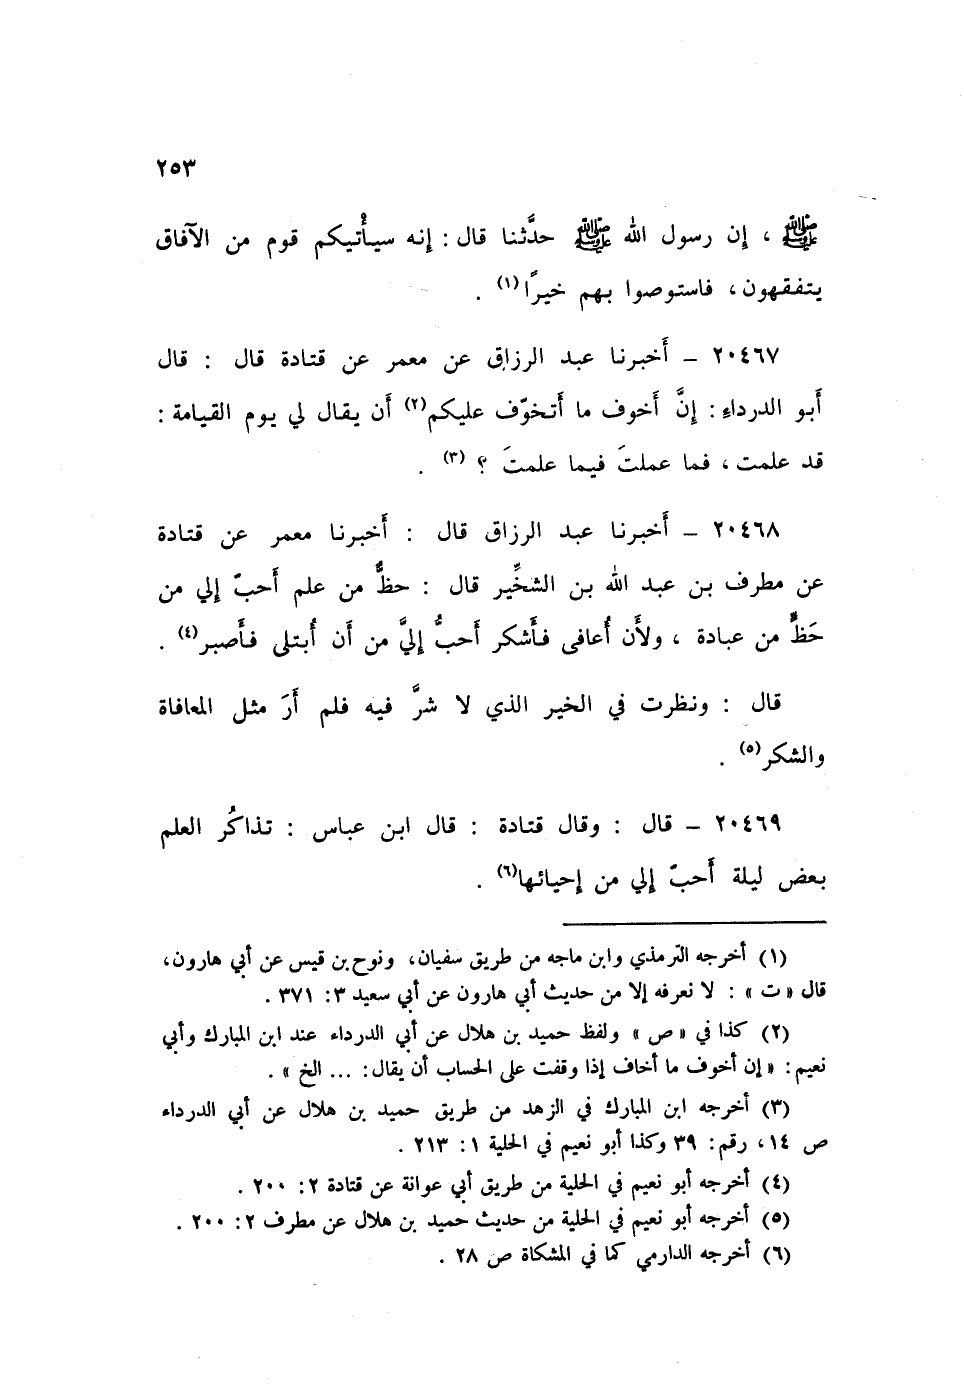 ٢٥٣
ﷺ ، إن رسول الله ﷺ حدَّثنا قال : إنه سيأْتيكم قوم من الآفاق
يتفقهون ، فاستوصوا بهم خيرًا (١) .
٢٠٤٦٧ – أَخبرنا عبد الرزاق عن معمر عن قتادة قال : قال
أَبو الدرداءِ : إنَّ أَخوف ما أَتخوّف عليكم (٢) أَن يقال لي يوم القيامة :
قد علمت ، فما عملتَ فيما علمتَ ؟ (٣) .
٢٠٤٦٨ – أَخبرنا عبد الرزاق قال : أَخبرنا معمر عن قتادة
عن مطرف بن عبد الله بن الشخِّير قال : حظٌّ من علم أَحبّ إلي من
حَظٍّ من عبادة ، ولأَن أُعافى فأَشكر أَحبُّ إليَّ من أَن أُبتلى فأَصبر (٤) .
قال : ونظرت في الخير الذي لا شرَّ فيه فلم أَرَ مثل المعافاة
والشكر (٥) .
٢٠٤٦٩ – قال : وقال قتادة : قال ابن عباس : تذاكُر العلم
بعض ليلة أَحبّ إلي من إحيائها (٦) .
(١) أخرجه الترمذي وابن ماجه من طريق سفيان، ونوح بن قيس عن أبي هارون،
قال « ت » : لا نعرفه إلا من حديث أبي هارون عن أبي سعيد ٣ : ٣٧١ .
(٢) كذا في « ص » ولفظ حميد بن هلال عن أبي الدرداء عند ابن المبارك وأبي
نعيم : « إن أخوف ما أخاف إذا وقفت على الحساب أن يقال : ... الخ » .
(٣) أخرجه ابن المبارك في الزهد من طريق حميد بن هلال عن أبي الدرداء
ص ١٤، رقم : ٣٩ وكذا أبو نعيم في الحلية ١ : ٢١٣ .
(٤) أخرجه أبو نعيم في الحلية من طريق أبي عوانة عن قتادة ٢ : ٢٠٠ .
(٥) أخرجه أبو نعيم في الحلية من حديث حميد بن هلال عن مطرف ٢ : ٢٠٠ .
(٦) أخرجه الدارمي كما في المشكاة ص ٢٨ .